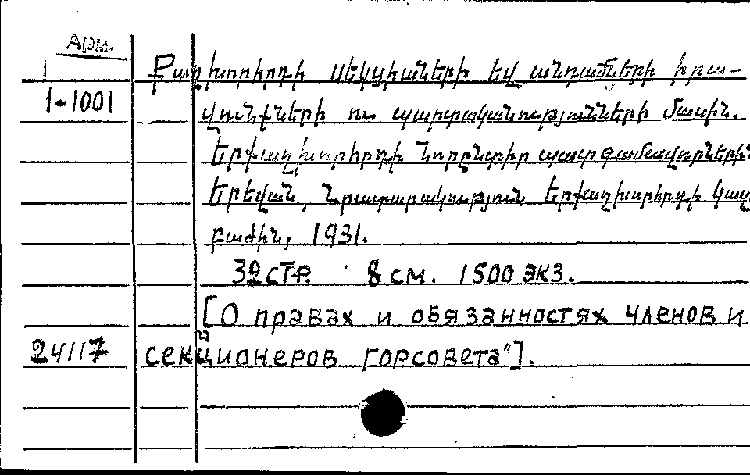 Арм.
Քաղխորհրդի սեկցիաների եվ անդամների իրա-
1-1001
վունքների ու պարտականությունների մասին.
Երքաղխորհրդի նորընտիր պատգամավորներին
Երեվան, Հրատարակություն Երքաղխորհրդի կազ
բաժին, 1931.
32 стр. 8 см. 1500 экз.
[О правах и обязанностях членов и
24117 секционеров горсовета"].